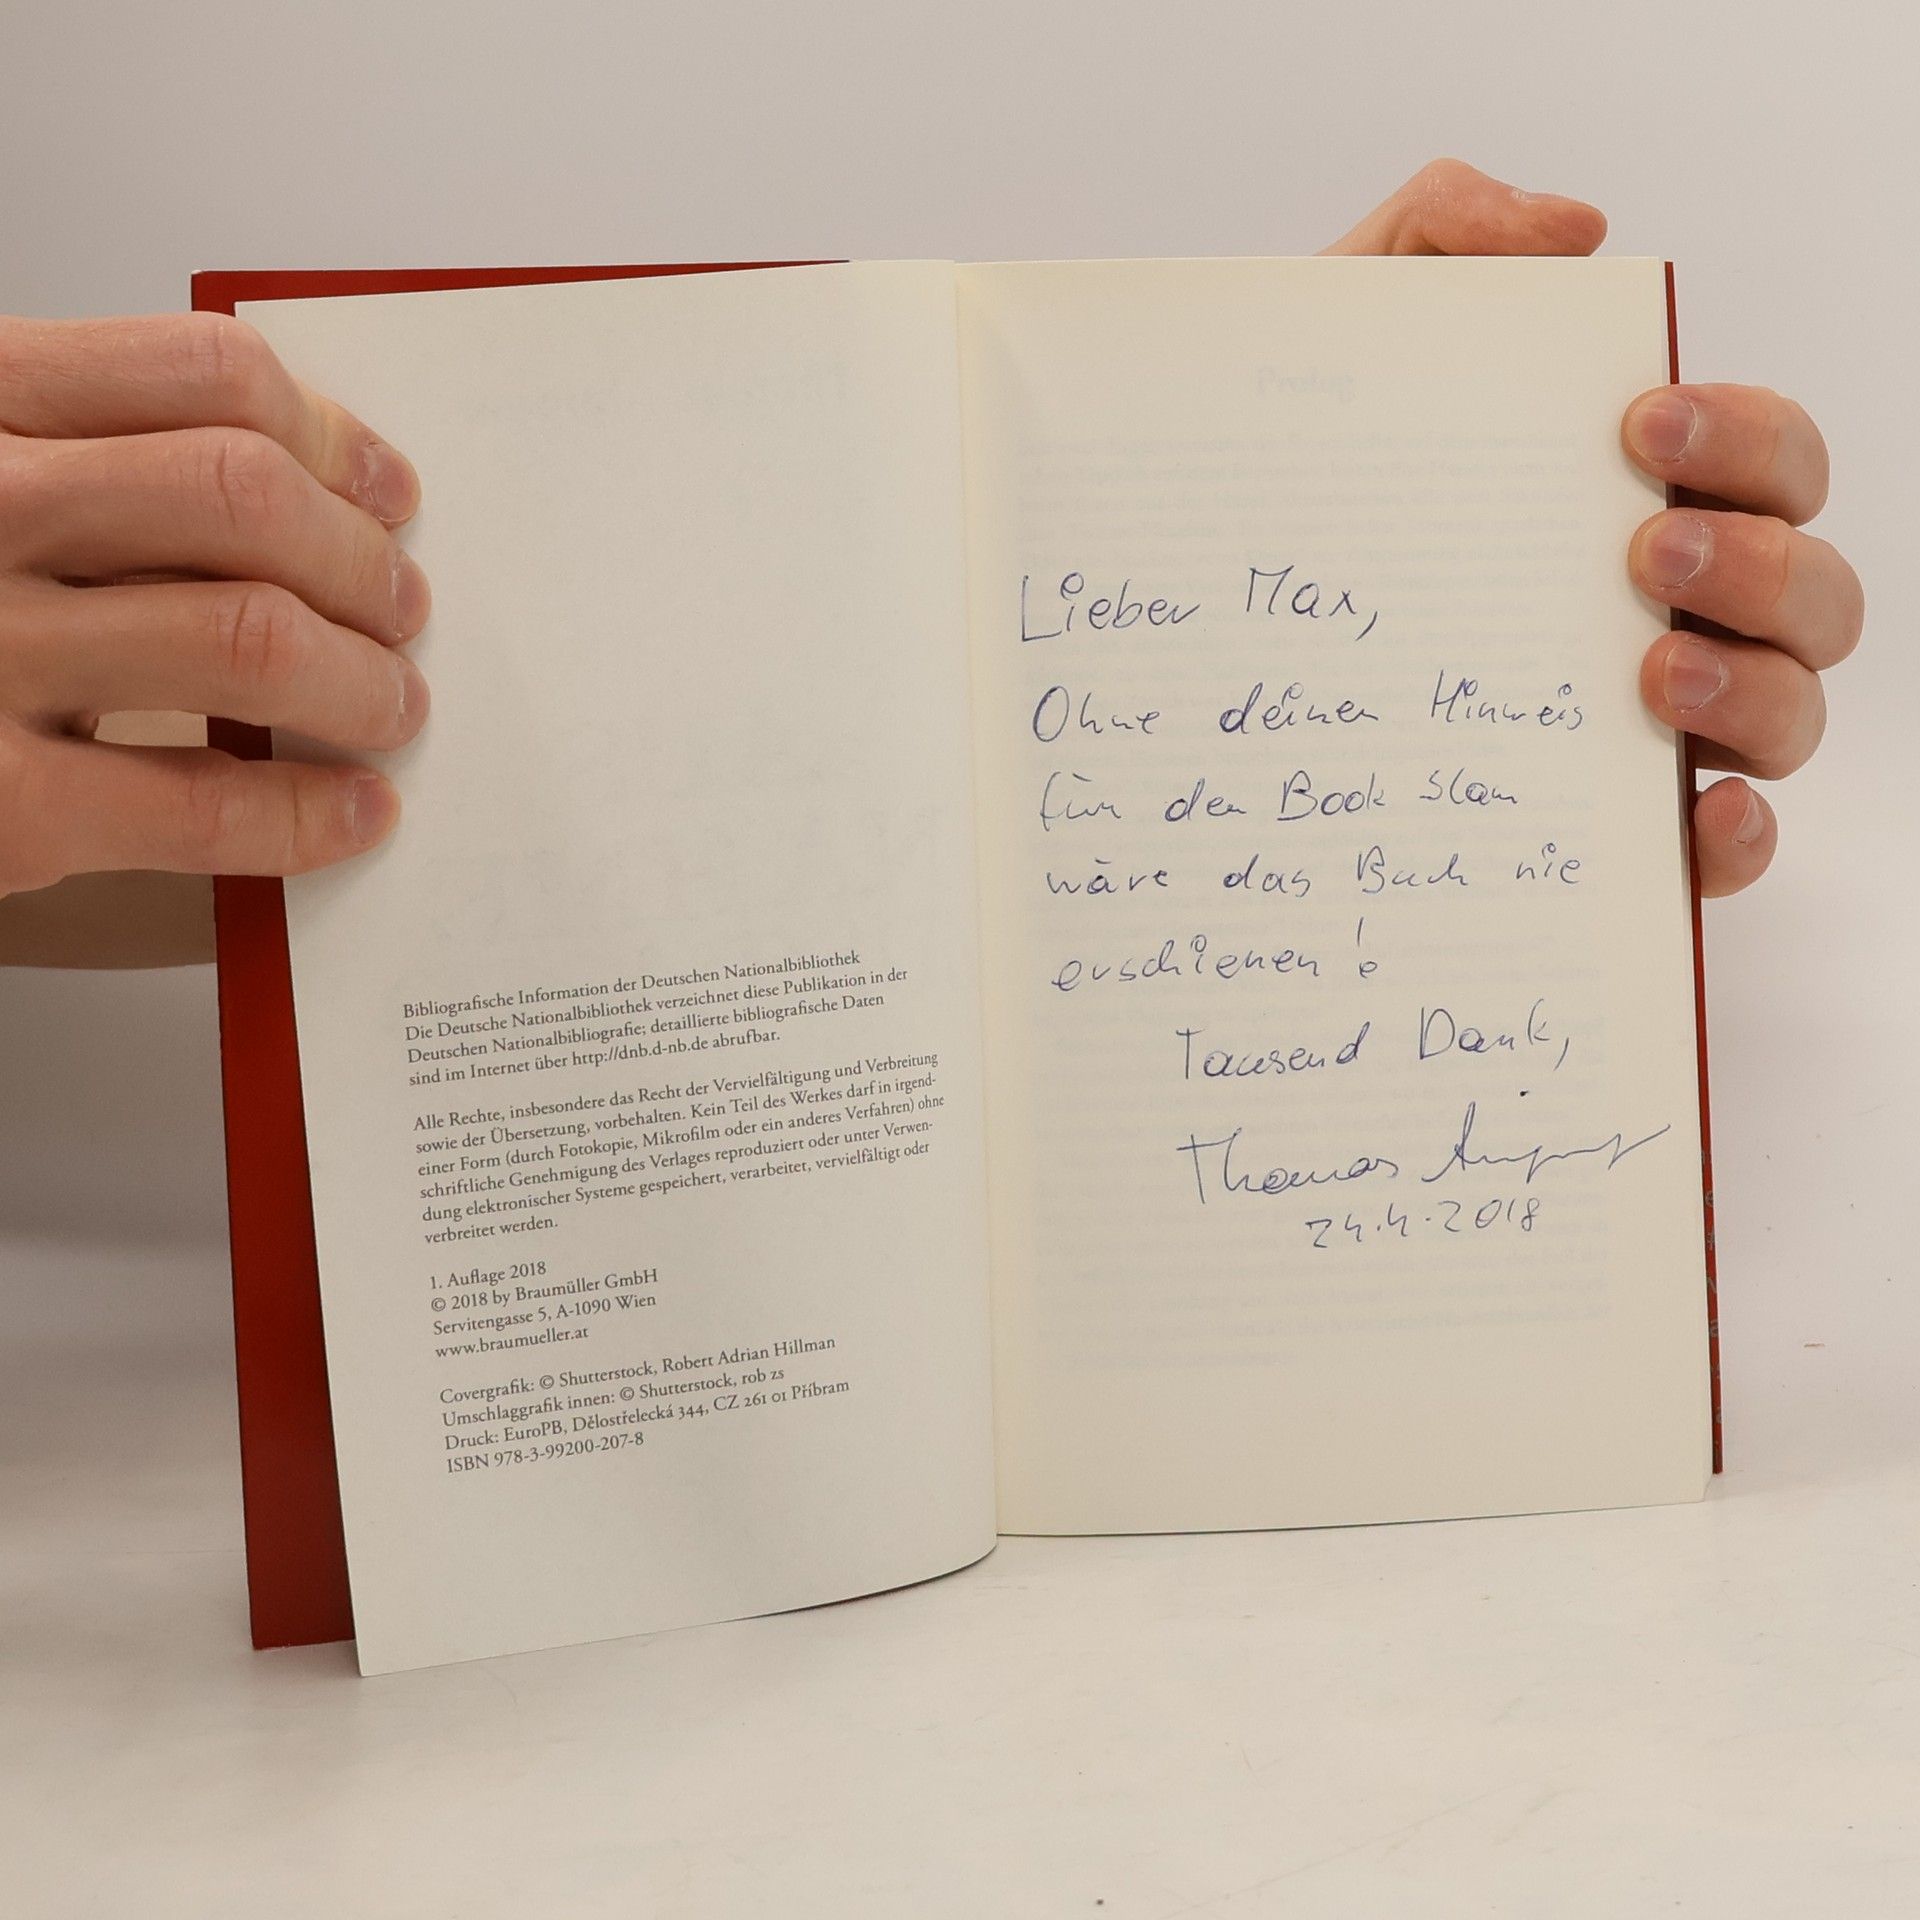 Bibliografische Information der Deutschen Nationalbibliothek
Die Deutsche Nationalbibliothek verzeichnet diese Publikation in der
Deutschen Nationalbibliografie; detaillierte bibliografische Daten
sind im Internet über http://dnb.d-nb.de abrufbar.
Alle Rechte, insbesondere das Recht der Vervielfältigung und Verbreitung
sowie der Übersetzung, vorbehalten. Kein Teil des Werkes darf in irgend-
einer Form (durch Fotokopie, Mikrofilm oder ein anderes Verfahren) ohne
schriftliche Genehmigung des Verlages reproduziert oder unter Verwen-
dung elektronischer Systeme gespeichert, verarbeitet, vervielfältigt oder
verbreitet werden.
1. Auflage 2018
© 2018 by Braumüller GmbH
Servitengasse 5, A-1090 Wien
www.braumueller.at
Covergrafik: © Shutterstock, Robert Adrian Hillman
Umschlaggrafik innen: © Shutterstock, rob zs
Druck: EuroPB, Dělostřelecká 344, CZ 261 01 Příbram
ISBN 978-3-99200-207-8
Lieber Max,
Ohne deinen Hinweis
für den Book Slam
wäre das Buch nie
erschienen!
Tausend Dank,
Thomas
24.4.2018